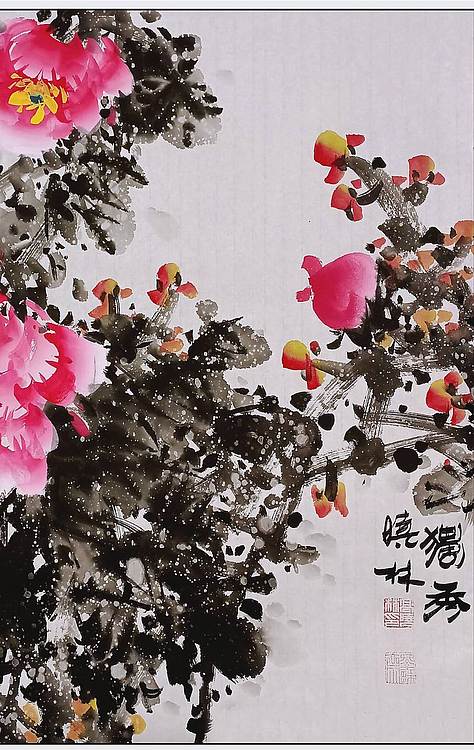 獨秀
曉林